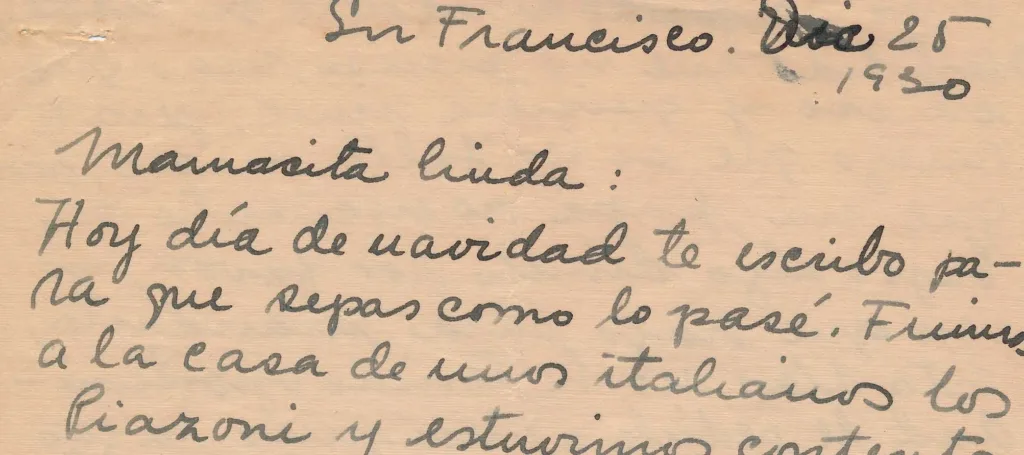 Sn Francisco. Dic 25
1930
Mamacita linda :
Hoy día de navidad te escribo pa-
ra que sepas como lo pasé. Fuimos
a la casa de unos italianos los
Piazoni y estuvimos